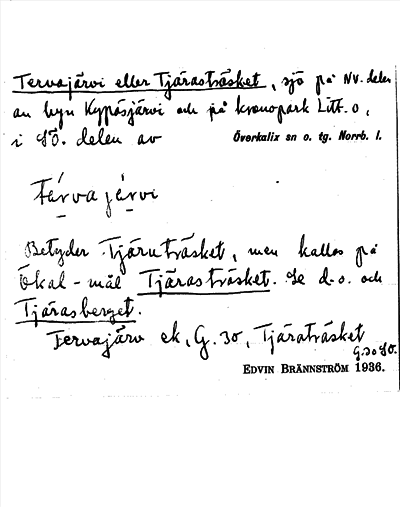 Tervajärvi eller Tjärasträsket, sjö på NV. delen
av byn Kypäsjärvi och på kronopark Litt. o,
i SÖ. delen av Överkalix sn o. tg. Norrb. l.
Tärvajärvi
Betyder Tjäruträsket, men kallas på
Ökal-mål Tjärasträsket. Se d. o. och
Tjärasberget.
Tervajärv ek, G. 30, Tjäraträsket
G. 30 SO.
EDVIN BRÄNNSTRÖM 1936.